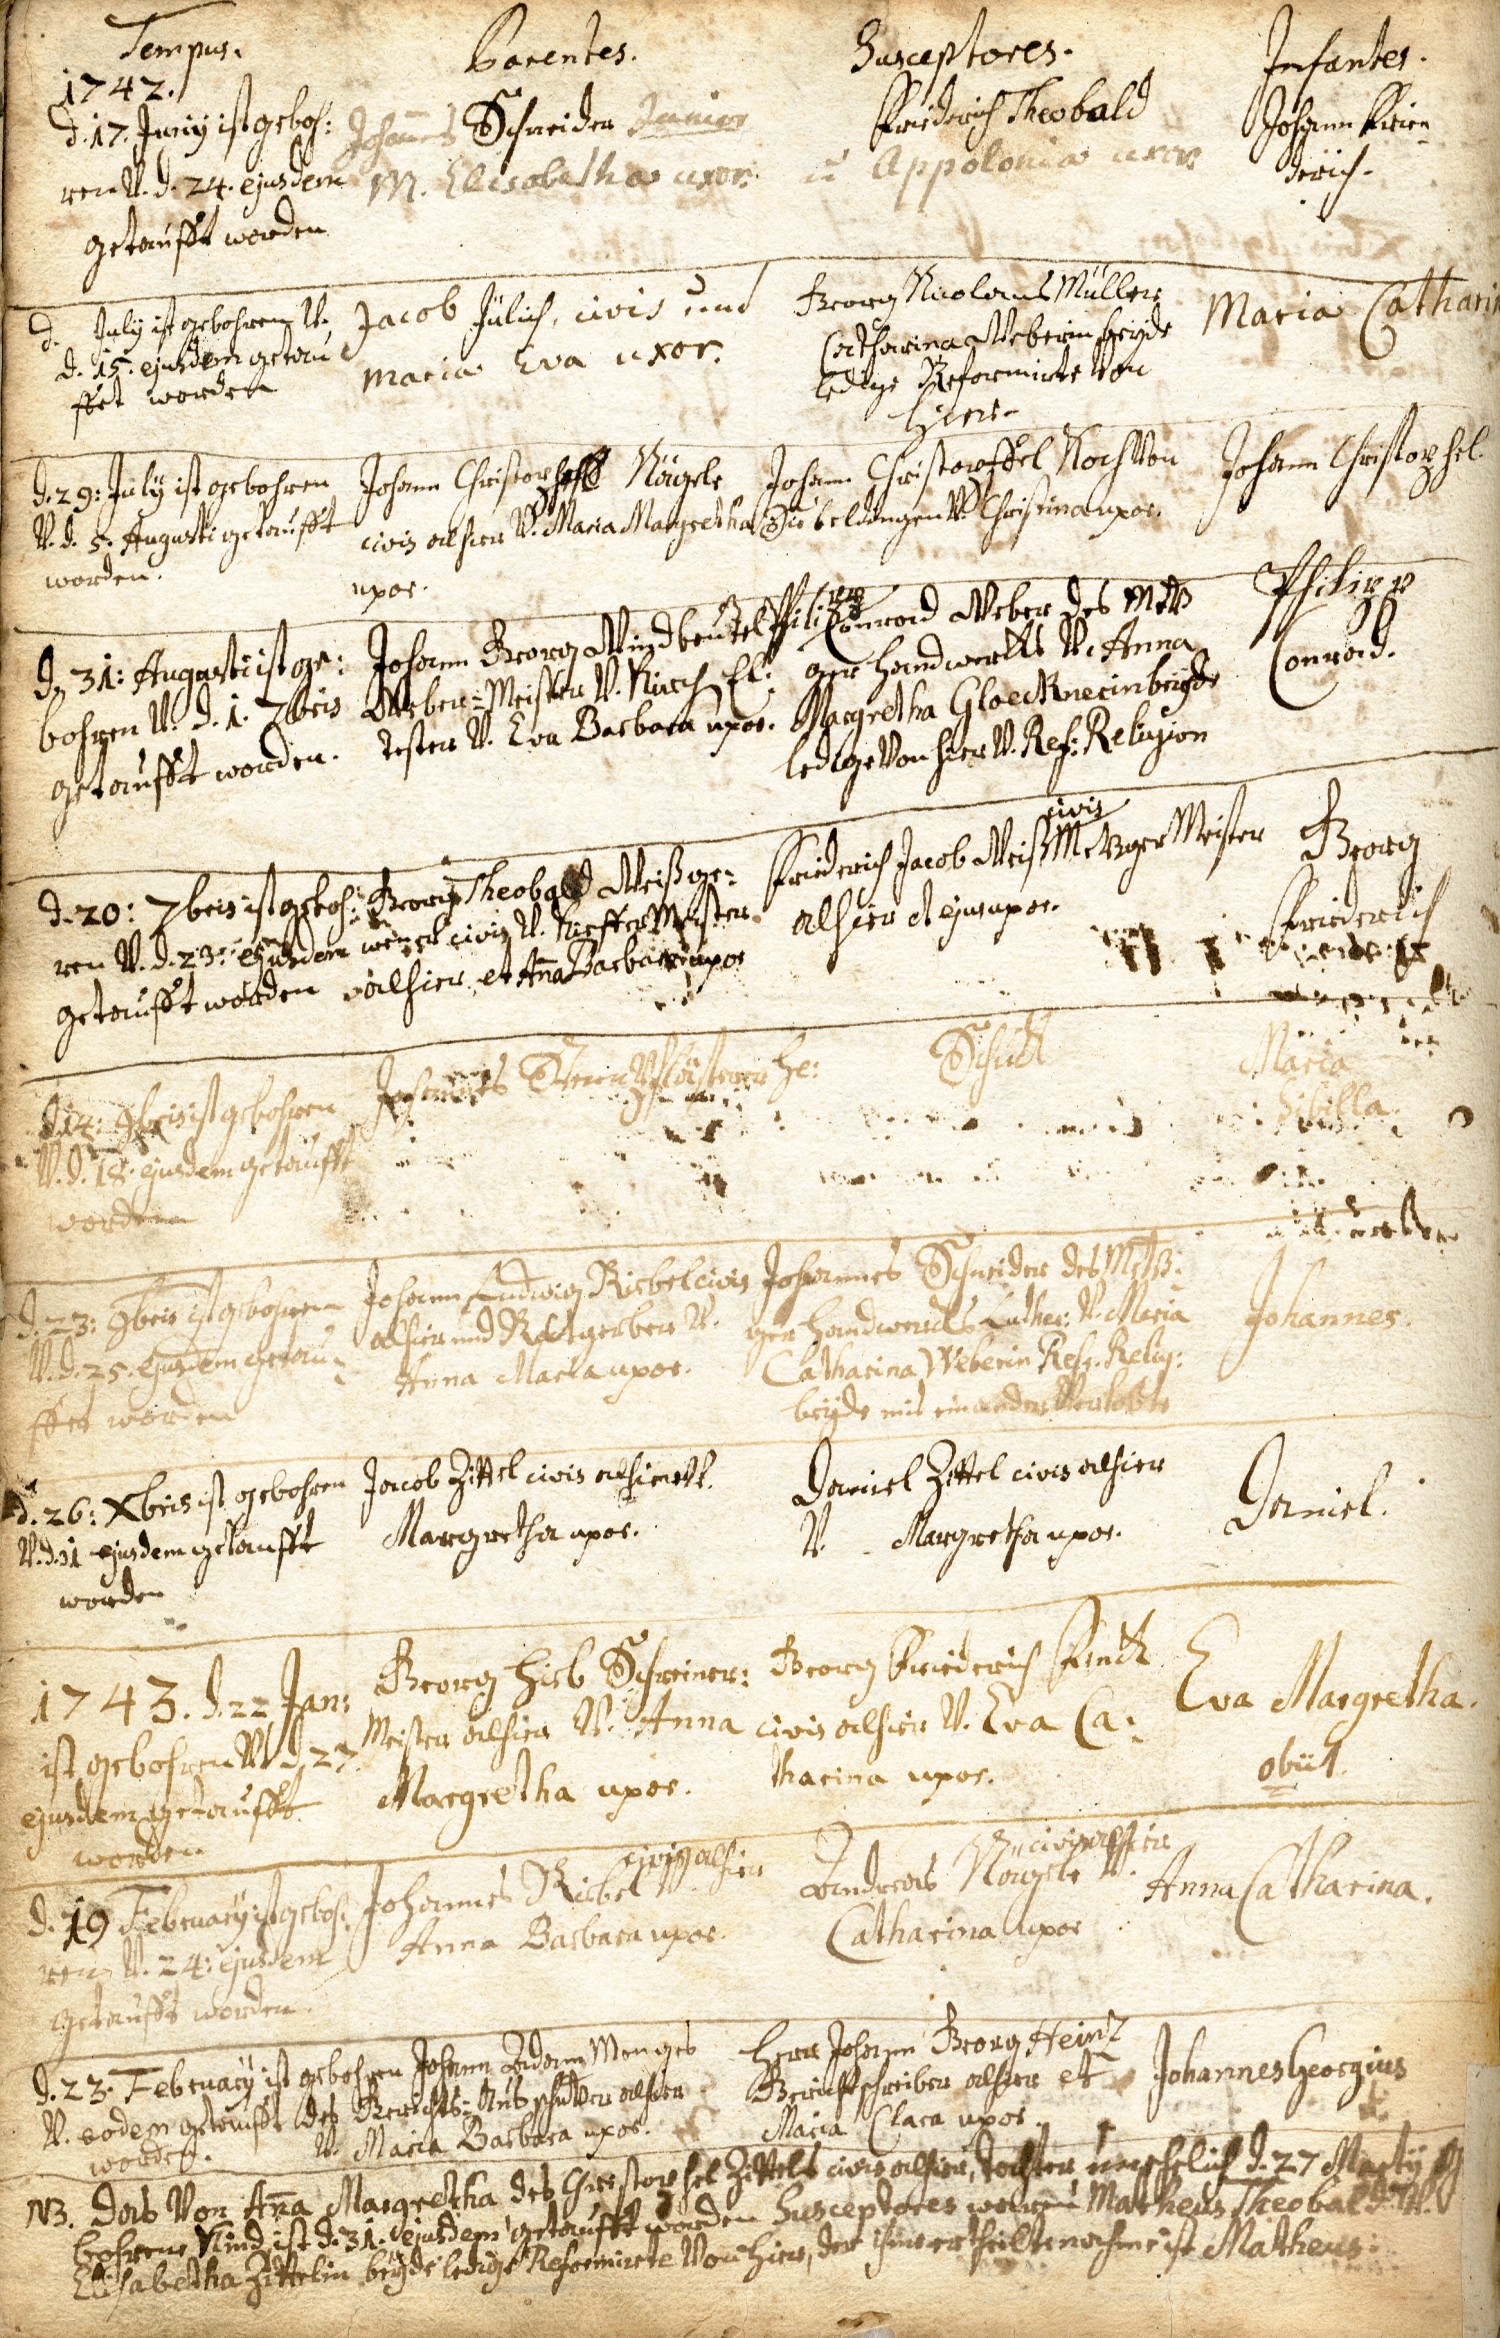 Tempus. Parentes. Susceptores. Infantes.
1742.
d. 17. Junij ist geboh:
ren V. d. 24. ejusdem
getaufft worden
Johannes Schneider Junior
M. Elisabetha uxor.
Friederich Theobald
Appolonia uxor
Johann Frie
derich.
d. July ist gebohren V.
d. 15. ejusdem getau
ffet worden
Jacob Jülich, civis und
Maria Eva uxor.
Georg Nicolaus Müller
Catharina Weberin beyde
ledige Reformirte von
hier.
Maria Catharin
d. 29: July ist gebohren
V. d. 5. Augusti getaufft
worden.
Johann Christophel Nägele
civis alhier V. Maria Margretha
uxor.
Johann Christoffel Koch von
beldingen V. Christina uxor.
Johann Christophel.
d. 31: Augusti ist ge:
bohren V. d. 1. 7bris
getaufft worden.
Johann Georg Windbeutel
Weber=Meister V. Kirch El:
tester V. Eva Barbara uxor.
Philipp Conrad Weber des Metz
ger handwerks V. Anna
Margretha Gloecknerin beyde
ledige von hier V. Ref: Religion
Philipp
Conrad.
d. 20: 7bris ist geboh:
ren V. d. 23: ejusdem
getaufft worden
Georg Theobald Weiß ge:
wesener civis V. Kieffer Meister
alhier et Aña Barbara uxor
Friederich Jacob Weiß civis Metzger Meister
alhier et ejus uxor.
Georg
Friederich
d. 14: 9bris ist gebohren
V. d. 18. ejusdem getaufft
worden
Johannes
Schütt
Maria
Sibilla.
d. 23: 9bris ist gebohren
V. d. 25. ejusdem getau
ffet worden
Johann Ludwig Riebel civis
alhier und Rothgerber V.
Anna Maria uxor.
Johannes Schneider des Metz:
ger handwercks Luther: V. Maria
Catharina Weberin Ref. Relig:
beyde mit einander Verlobte
Johannes.
d. 26: Xbris ist gebohren
V. d. 31 ejusdem getaufft
worden
Jacob Zittel civis alhier V.
Margretha uxor.
Daniel Zittel civis alhier
V. Margretha uxor.
Daniel.
1743. d. 22 Jan:
ist gebohren V. d. 27.
ejusdem getaufft
worden
Georg Hieb Schreiner:
Meister alhier V. Anna
Margretha uxor.
Georg Friederich Finck
civis alhier V. Eva Ca:
tharina uxor.
Eva Margretha.
obiit.
d. 19 February ist geboh:
ren V. 24: ejusdem
getaufft worden.
Johannes Riebel civis alhier V.
Anna Barbara uxor.
Andreas Nägele civis alhier V.
Catharina uxor
Anna Catharina.
d. 23. February ist gebohren
V. eodem getaufft
worden.
Johann Adam Menges
des Gerichts= alhier
V. Maria Barbara uxor.
Herr Johann Georg Heintz
Gerichtschreiber alhier et
Maria Clara uxor.
Johannes Georgius
NB. Das von Aña Margretha des Christophel Zittels civis alhier, Tochter unehelich d. 27 Martij ge
bohrene Kind ist d. 31. ejusdem getaufft worden Susceptores waren Matheus Theobald V.
Elisabetha Zittelin beyde ledige Reformirte von hier, der ihme ertheilte nahme ist Matheus.